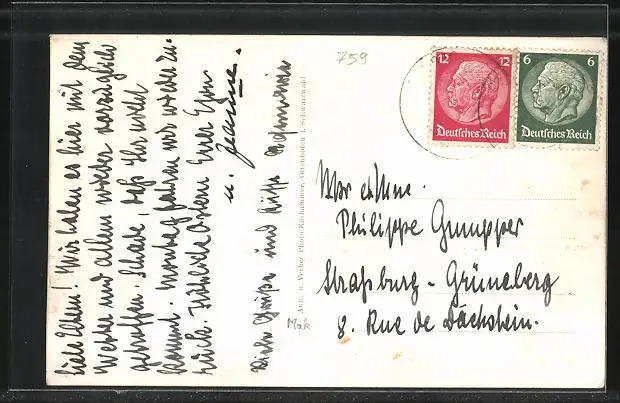 Liebe Eltern! Wir haben es hier mit dem
Wetter und allem wieder vorzüglich
getroffen. Schade, daß Ihr nicht
kommt. Montag fahren wir wieder zu-
rück. Herzliche Grüße Euer
u. Jeanne.
Viele Grüße und Küsse
759
12 12
Deutsches Reich
6 6
Deutsches Reich
Aufn. u. Verlag Photo-Käshammer, Ottenhöfen i. Schwarzwald
Mak
Philippe Gumpper
Straßburg - Grüneberg
8. Rue de Dachstein.